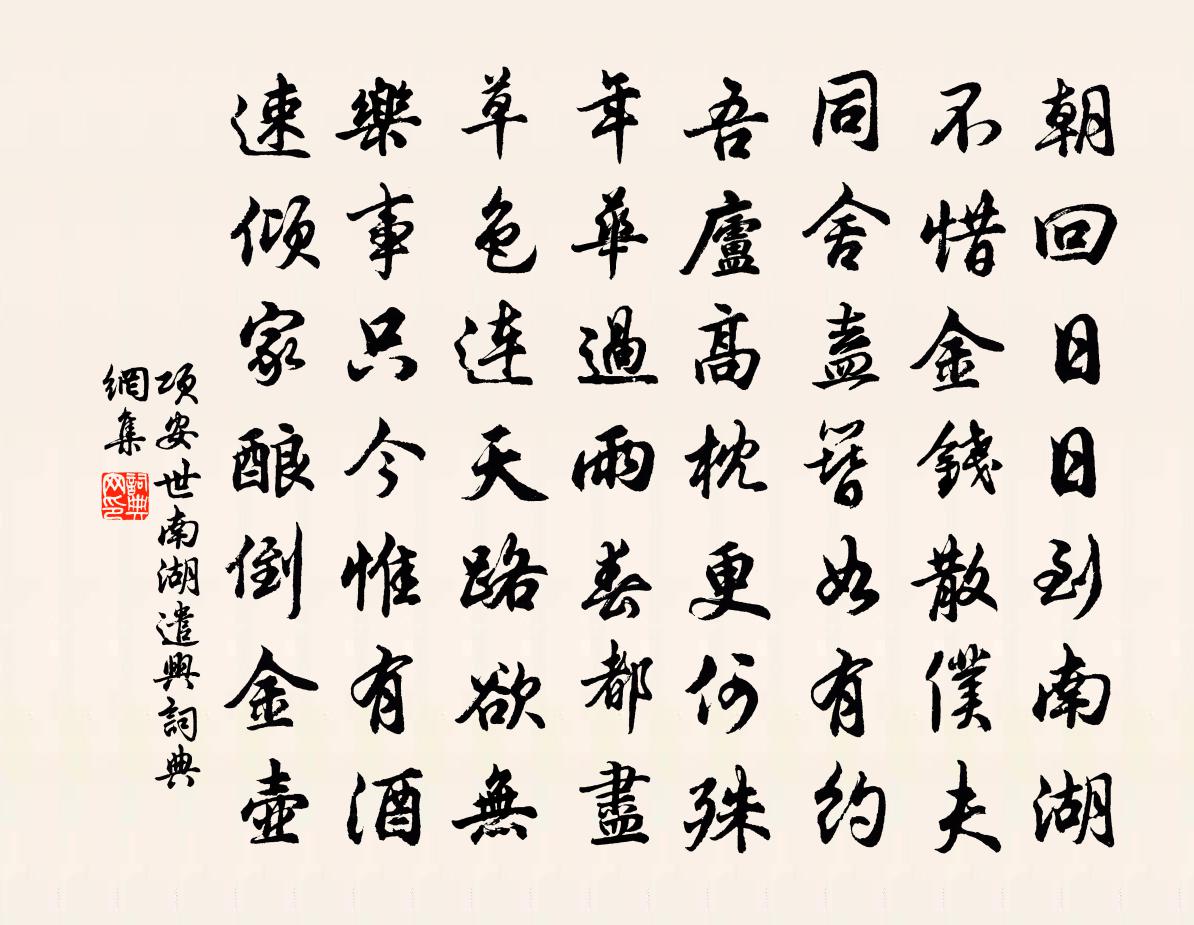 朝回日日到南湖
不惜金錢散僕夫
同舍盍簪如有約
吾廬高枕更何殊
年華過雨春都盡
草色連天路欲無
樂事只今惟有酒
速傾家酿倒金壺
項安世南湖遣興詞典
網集
詞典
网印